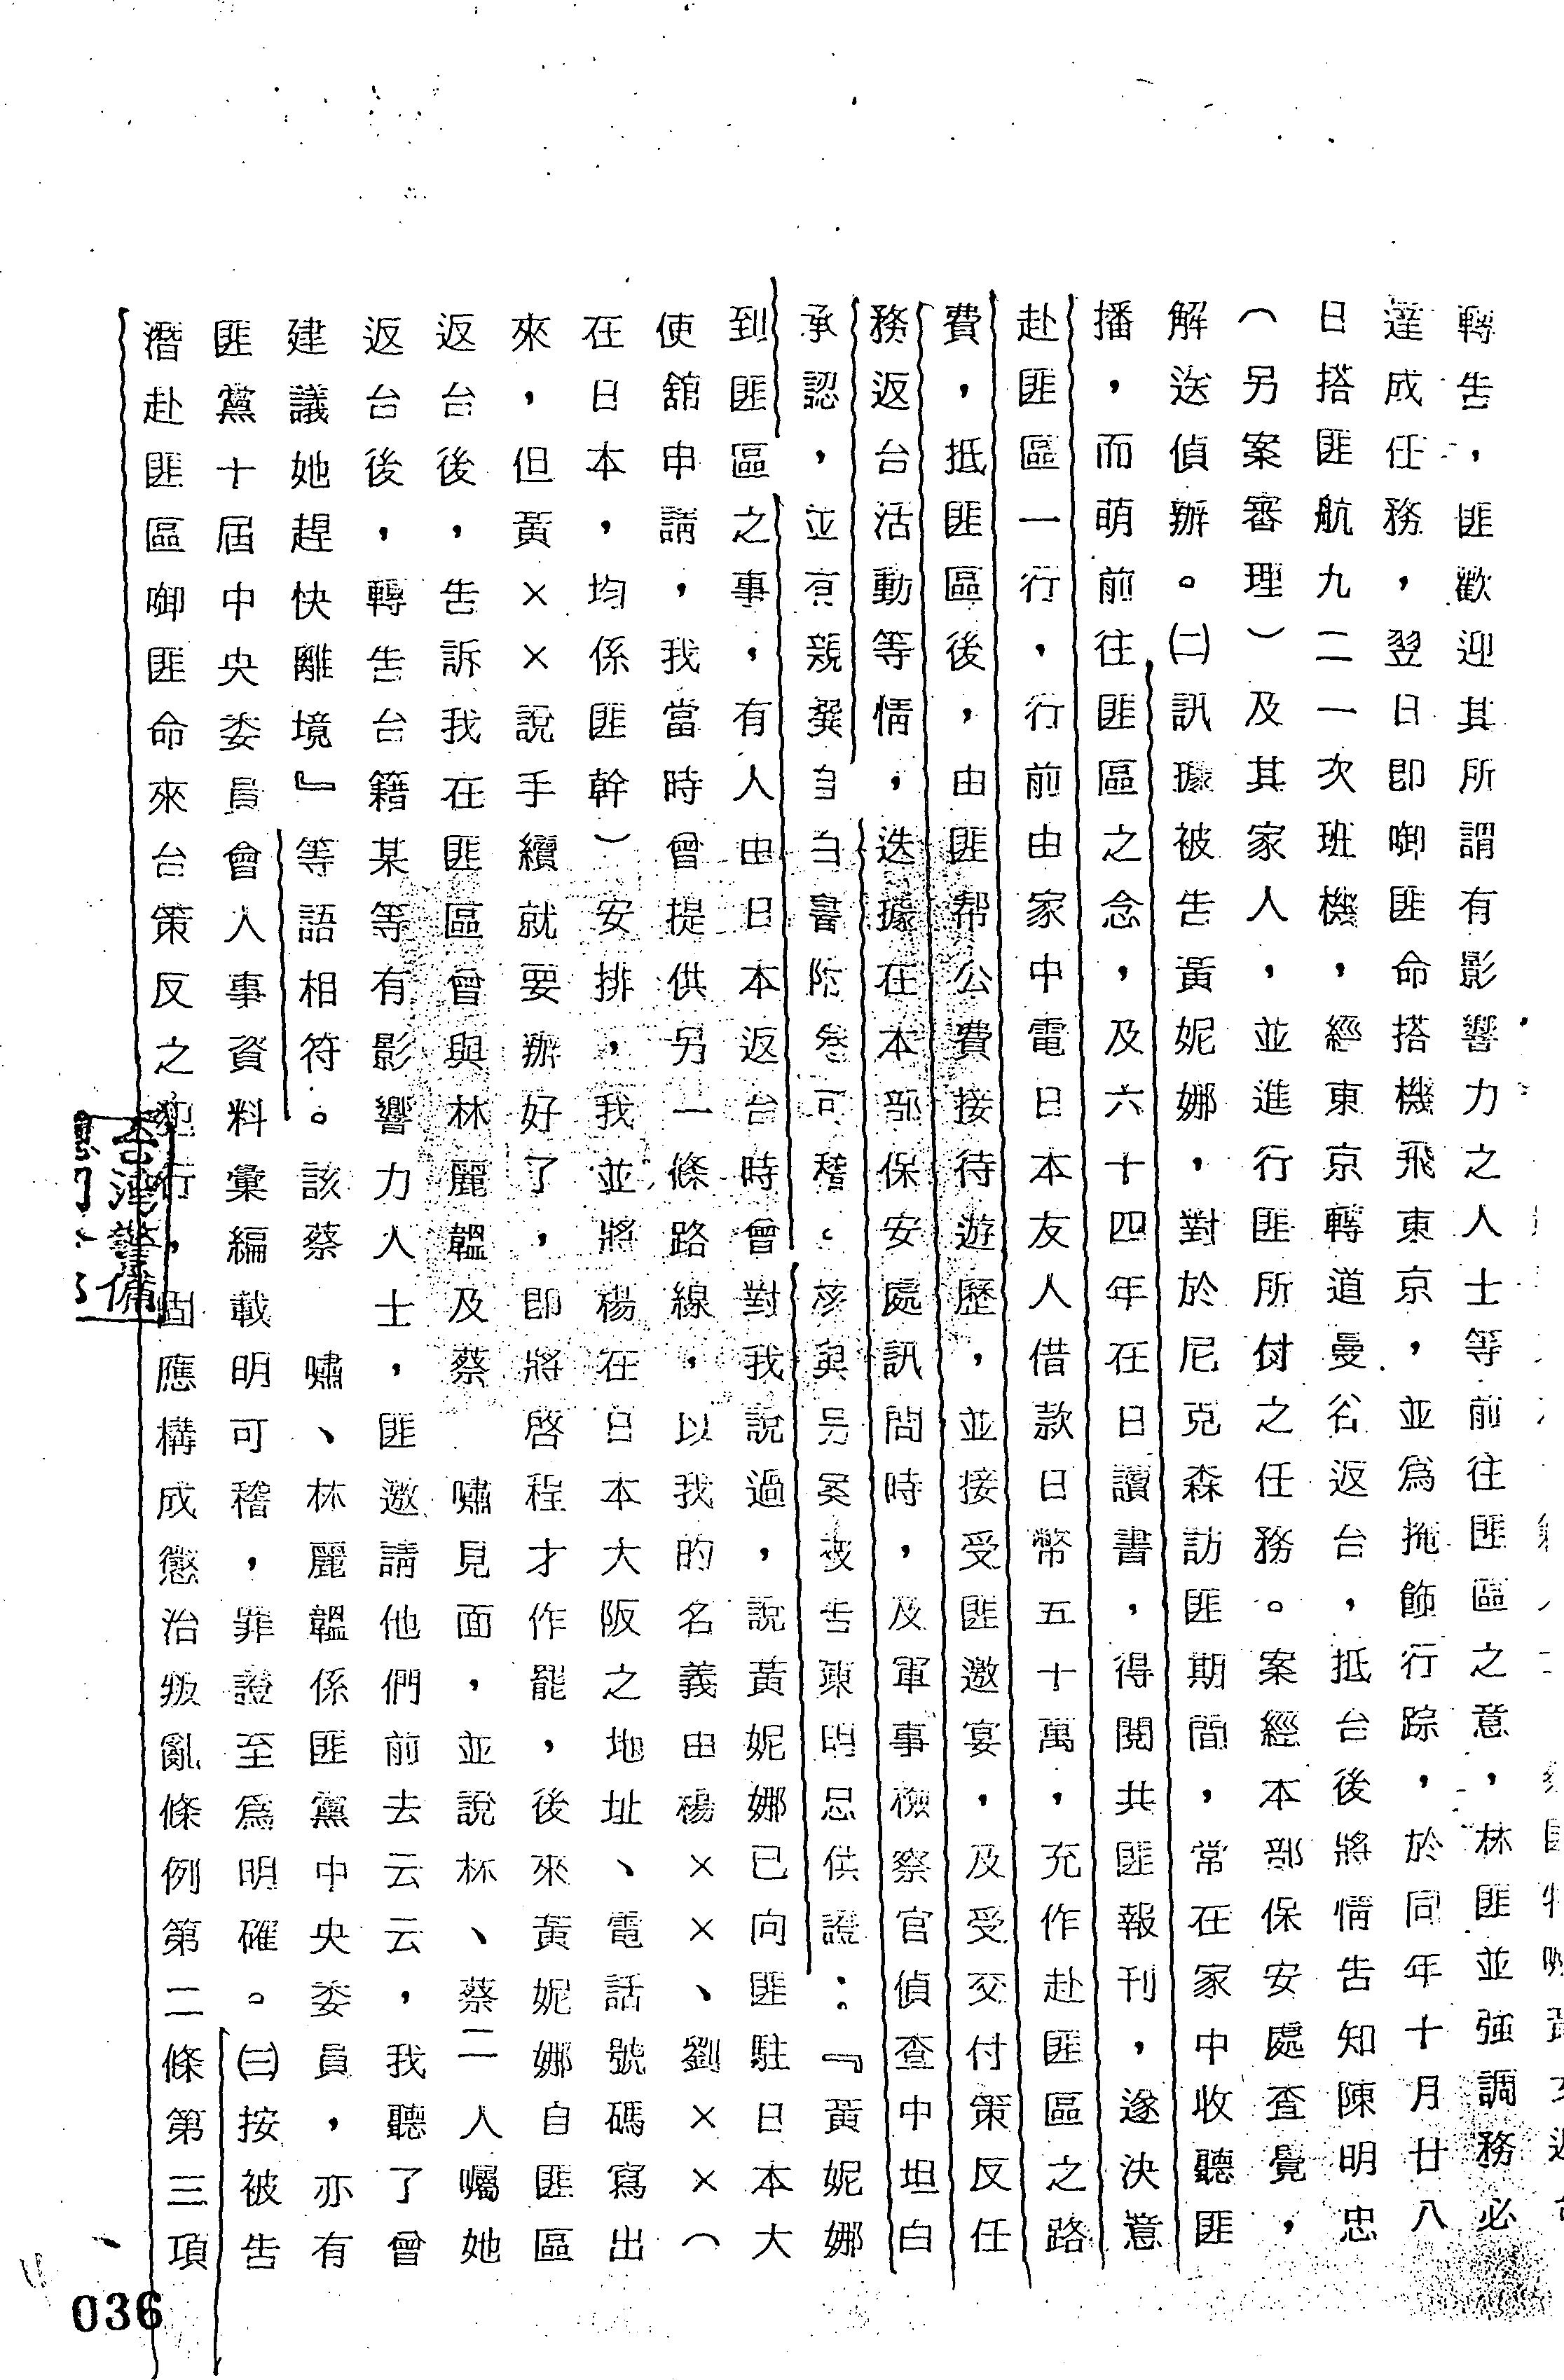 轉告，匪歡迎其所謂有影響力之人士等前往匪區之意，林匪並強調務必
達成任務，翌日即啣匪命搭機飛東京，並為掩飾行踪，於同年十月廿八
日搭匪航九二一次班機，經東京轉道曼谷返台，抵台後將情告知陳明忠
（另案審理）及其家人，並進行匪所付之任務。案經本部保安處查覺，
解送偵辦。㈡訊據被告黃妮娜，對於尼克森訪匪期間，常在家中收聽匪
播，而萌前往匪區之念，及六十四年在日讀書，得閱共匪報刊，遂決意
赴匪區一行，行前由家中電日本友人借款日幣五十萬，充作赴匪區之路
費，抵匪區後，由匪帮公費接待遊歷，並接受匪邀宴，及受交付策反任
務返台活動等情，迭據在本部保安處訊問時，及軍事檢察官偵查中坦白
承認，並有親撰自白書附卷可稽。核與另案被告陳明忠供證：『黃妮娜
到匪區之事，有人由日本返台時曾對我說過，說黃妮娜已向匪駐日本大
使舘申請，我當時曾提供另一條路線，以我的名義由楊××、劉××（
在日本，均係匪幹）安排，我並將楊在日本大阪之地址、電話號碼寫出
來，但黃××說手續就要辦好了，即將啓程才作罷，後來黃妮娜自匪區
返台後，告訴我在匪區曾與林麗韞及蔡　嘯見面，並說林、蔡二人囑她
返台後，轉告台籍某等有影響力人士，匪邀請他們前去云云，我聽了曾
建議她趕快離境』等語相符。該蔡　嘯、林麗韞係匪黨中央委員，亦有
匪黨十屆中央委員會人事資料彙編載明可稽，罪證至為明確。㈢按被告
潛赴匪區啣匪命來台策反之犯行，固應構成懲治叛亂條例第二條第三項
台灣警備
036